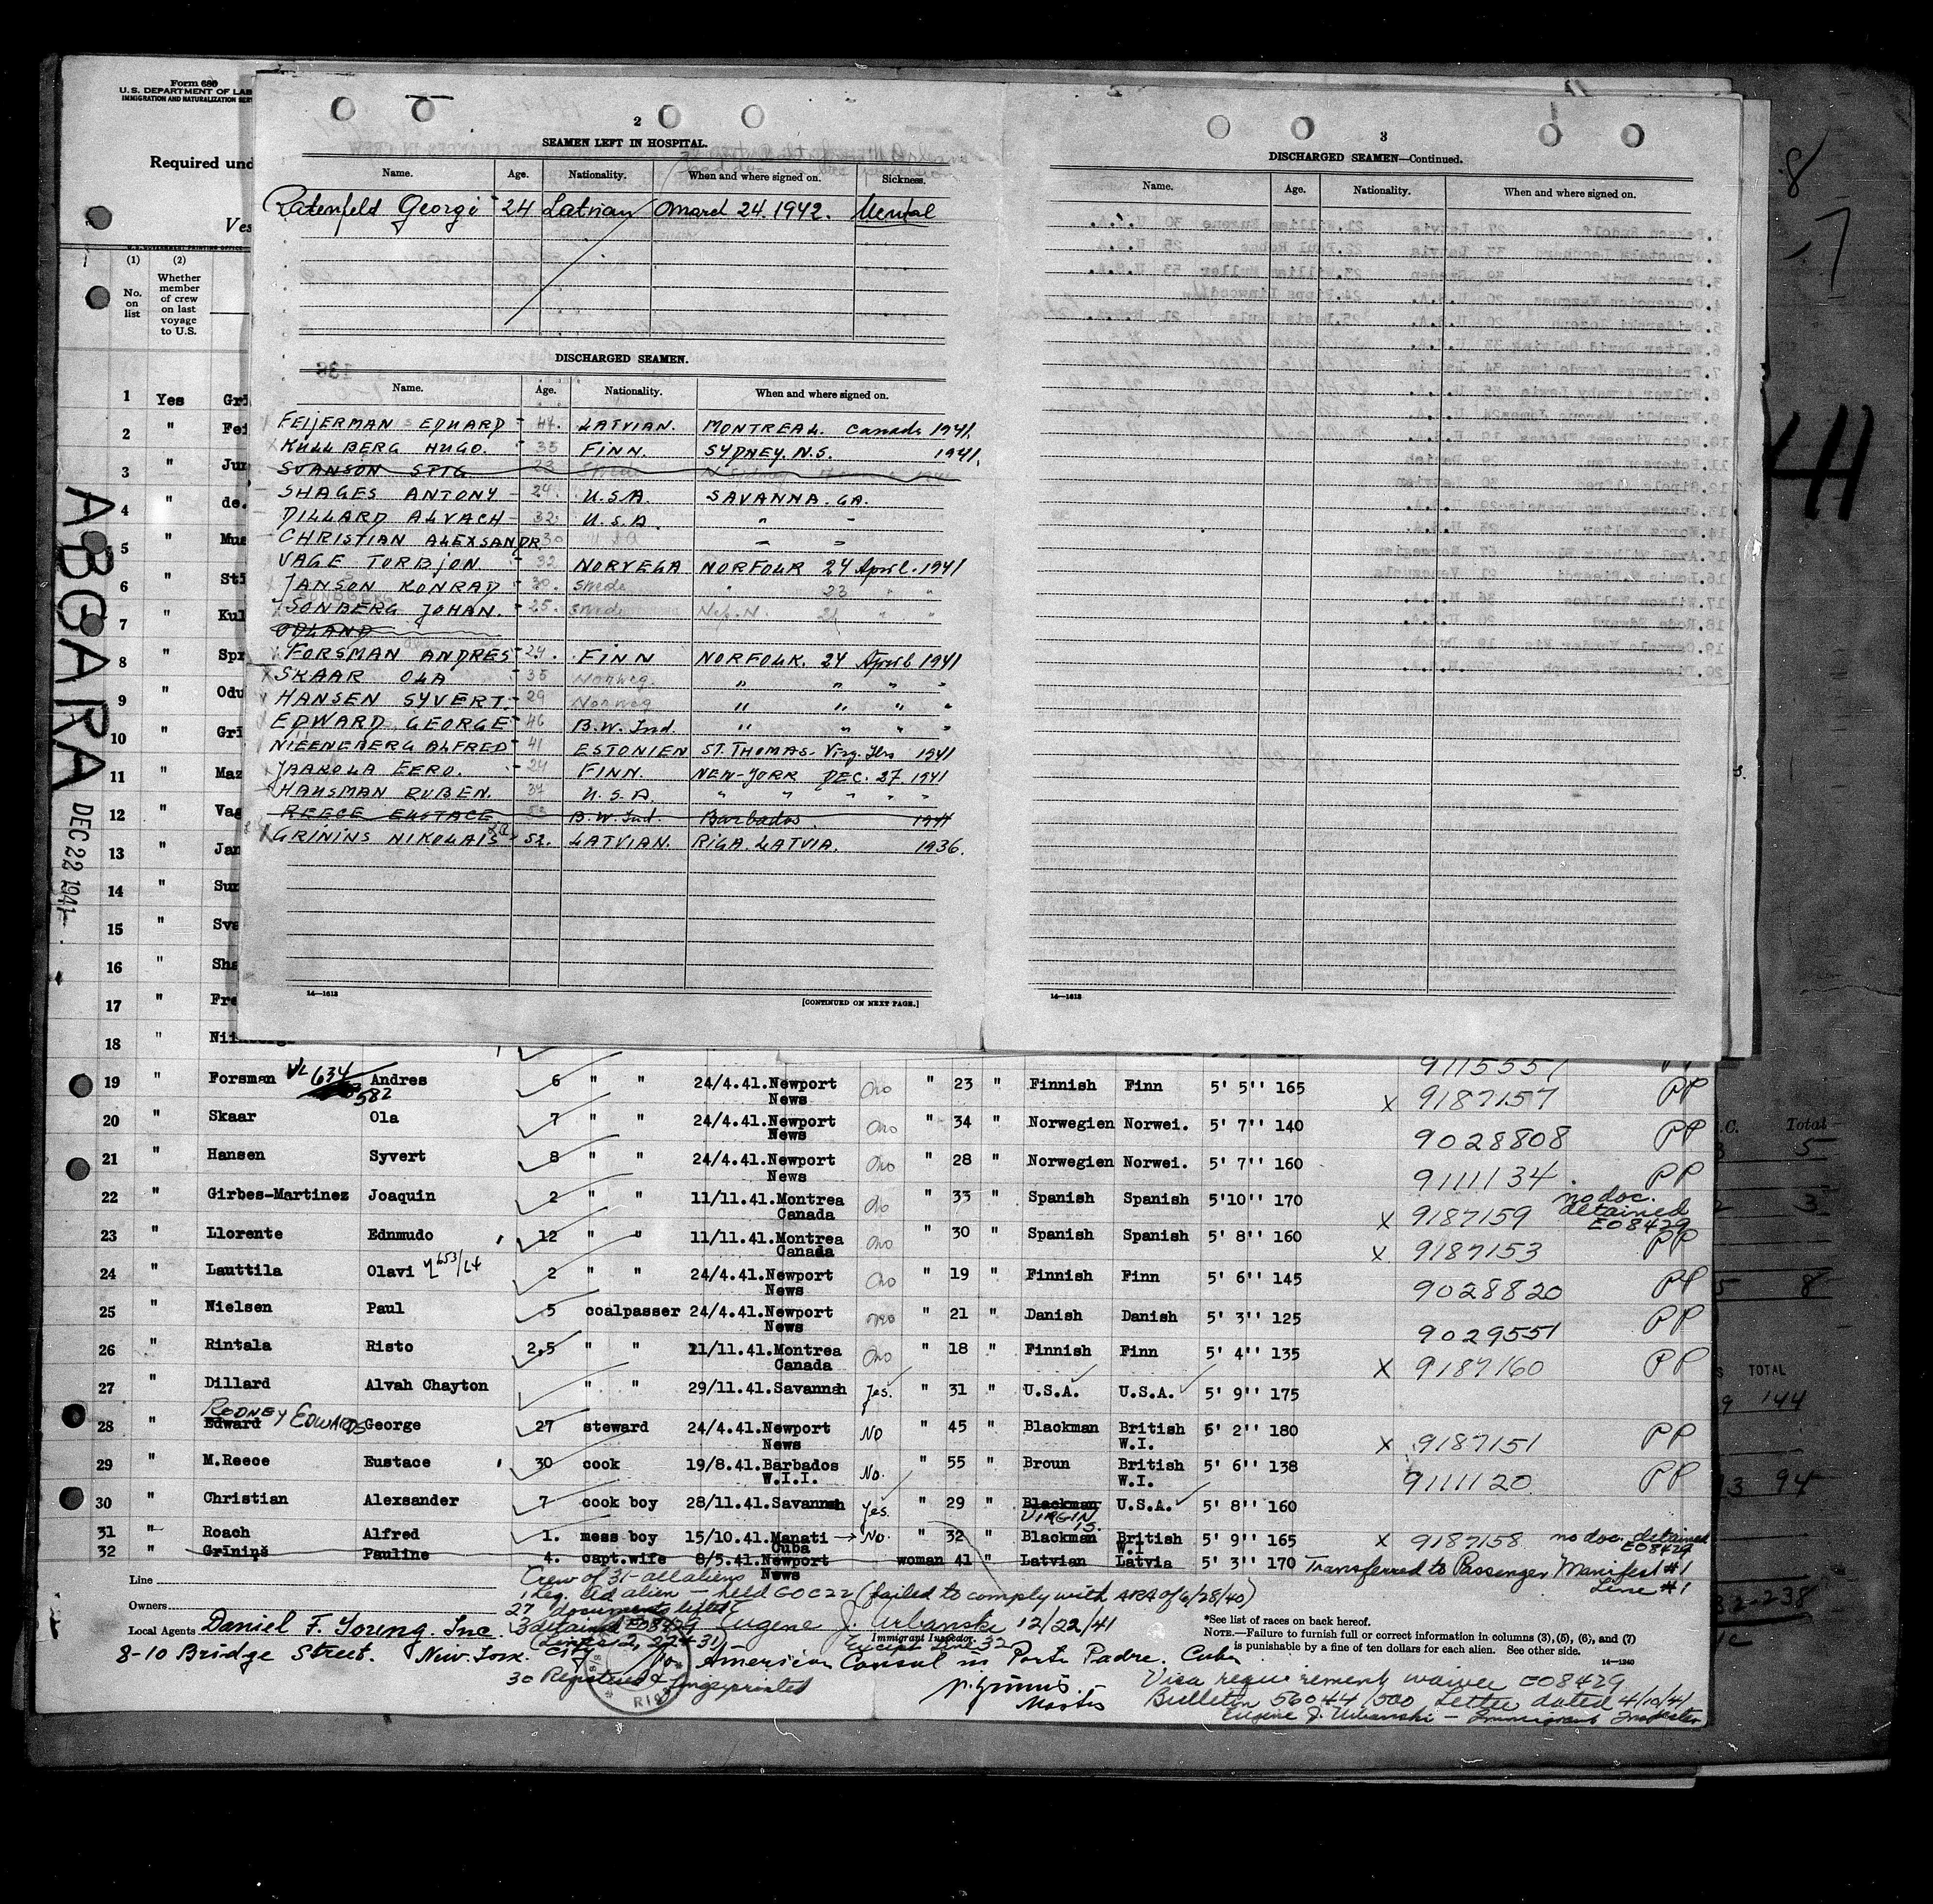 Form 680
U.S. DEPARTMENT OF LAB
IMMIGRATION AND NATURALIZATION SER
Required und
Ves
(1) (2)
No. on list
Whether member of crew on last voyage to U.S.
1 Yes Gri
2 " Fei
3 " Jur
4 " de.
5 " Mus
6 " Sti
7 " Kul
8 " Spr
9 " Odu
10 " Gri
11 " Maz
12 " Vag
13 " Jan
14 " Sur
15 " Sva
16 " Sha
17 " Fre
18 "
ABGARA
DEC 22 1941
2
SEAMEN LEFT IN HOSPITAL.
Name. Age. Nationality. When and where signed on. Sickness.
Ratenfeld Georgi 24 Latvian March 24. 1942. Mental
DISCHARGED SEAMEN.
Name. Age. Nationality. When and where signed on.
FEIJERMAN EDUARD 44. LATVIAN. MONTREAL. Canada 1941.
KULLBERG HUGO. 35 FINN. SYDNEY. N.S. 1941.
SVANSON STIG 23 Swede
SHAGES ANTONY 24. U.S.A. SAVANNA. GA.
DILLARD ALVACH 32. U.S.A. " "
CHRISTIAN ALEXSANDR. 30 USA " "
VAGE TORBJON 32 NORVEGA NORFOLK 24 April. 1941
JANSON KONRAD 30. Swede " 23 " "
SONBERG JOHAN. 25. Swede Nep. N. 24 " "
ODLAND
FORSMAN ANDRES 24. FINN NORFOLK. 24 April 1941
SKAAR OLA 35 Norweg. " " " "
HANSEN SYVERT. 29 Norweg " " " "
EDWARD GEORGE 46 B.W. Ind. " " " "
NIEENEBERG ALFRED 41 ESTONIEN ST. THOMAS. Virg. Ils 1941
JAAKOLA EERO. 24 FINN. NEW-YORK DEC. 27. 1941
HAUSMAN RUBEN. 34 U.S.A. " " " "
REECE EUSTACE 53 B.W. Ind. Barbados. 1941
GRININS NIKOLAIS 52. LATVIAN. RIGA. LATVIA. 1936.
14—1613
[CONTINUED ON NEXT PAGE.]
3
DISCHARGED SEAMEN—Continued.
Name. Age. Nationality. When and where signed on.
14—1613
8
7
44
9115557
19 " Forsman VL 634 582 Andres 6 " " 24/4.41.Newport News No " 23 " Finnish Finn 5' 5'' 165 x 9187157 PP
20 " Skaar Ola 7 " " 24/4.41.Newport News No " 34 " Norwegien Norwei. 5' 7'' 140 9028808 PP
21 " Hansen Syvert 8 " " 24/4.41.Newport News No " 28 " Norwegien Norwei. 5' 7'' 160 9111134. PP
22 " Girbes-Martinez Joaquin 2 " " 11/11.41.Montrea Canada No " 33 " Spanish Spanish 5'10'' 170 x 9187159 no doc. detained E08429
23 " Llorente Ednmudo 12 " " 11/11.41.Montrea Canada No 30 " Spanish Spanish 5' 8'' 160 x 9187153 PP
24 " Lauttila Olavi 2 " " 24/4.41.Newport News No " 19 " Finnish Finn 5' 6'' 145 9028820 PP
25 " Nielsen Paul 5 coalpasser 24/4.41.Newport News No " 21 " Danish Danish 5' 3'' 125 9029551 PP
26 " Rintala Risto 2,5 " " 11/11.41.Montrea Canada No " 18 " Finnish Finn 5' 4'' 135 x 9187160 PP
27 " Dillard Alvah Chayton " " 29/11.41.Savannah Yes. " 31 " U.S.A. U.S.A. 5' 9'' 175
28 " Edward RODNEY EDWARDS George 27 steward 24/4.41.Newport News No " 45 " Blackman British W.I. 6' 2'' 180 x 9187151 PP
29 " M.Reece Eustace 30 cook 19/8.41.Barbados W.I.I. No. " 55 " Broun British W.I. 5' 6'' 138 9111120 PP
30 " Christian Alexsander 7 cook boy 28/11.41.Savannah Yes " 29 " Blackman VIRGIN IS. U.S.A. 5' 8'' 160
31 " Roach Alfred 1. mess boy 15/10.41.Manati Cuba No. " 32 " Blackman British W.I 5' 9'' 165 x 9187158 no doc. detained E08429
32 " Grīniņš Pauline 4. capt.wife 8/5.41.Newport News woman 41 " Latvian Latvia 5' 3'' 170 Transferred to Passenger Manifest #1 Line #1
Line
Crew of 31-all aliens
held GOC22 (failed to comply with ARA of 6/28/40)
Owners
27 documents lifted
Local Agents Daniel F. Young. Inc.
3 detained E08429
Eugene J. Urbanski 12/22/41
Immigrant Inspector.
Except Line 32
8-10 Bridge Street. New York. City
American Consul in Porto Padre. Cuba
30 Registered & fingerprinted
RIGA
Master
*See list of races on back hereof.
NOTE.—Failure to furnish full or correct information in columns (3), (5), (6), and (7)
is punishable by a fine of ten dollars for each alien. See other side.
14—1240
Visa requirement waived E08429
Bulletin 56044/500 Letter dated 4/10/41
Eugene J. Urbanski — Immigrant Inspector
C. Total
5
3
8
TOTAL
144
94
238